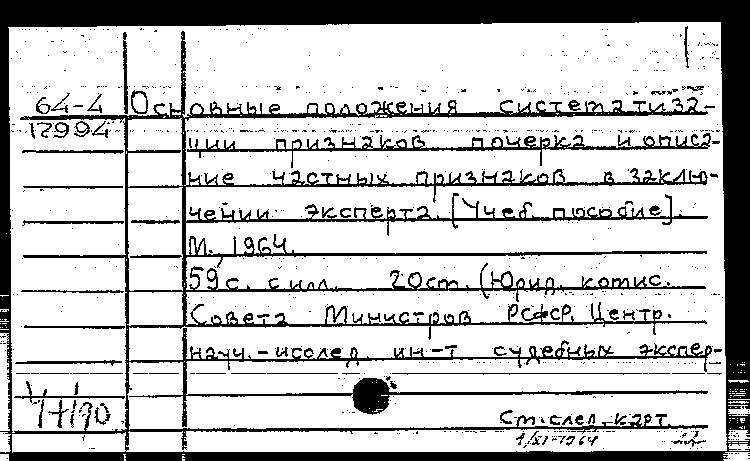 64-4 Основные положения систематиза-
12994 ции признаков почерка и описа-
ние частных признаков в заклю-
чении эксперта. [Учеб. пособие].
М., 1964.
59 с. с илл. 20 см. (Юрид. комис.
Совета Министров РСФСР. Центр.
науч.-исслед. ин-т судебных экспер-
Ст. след. карт.
1/XI-1964